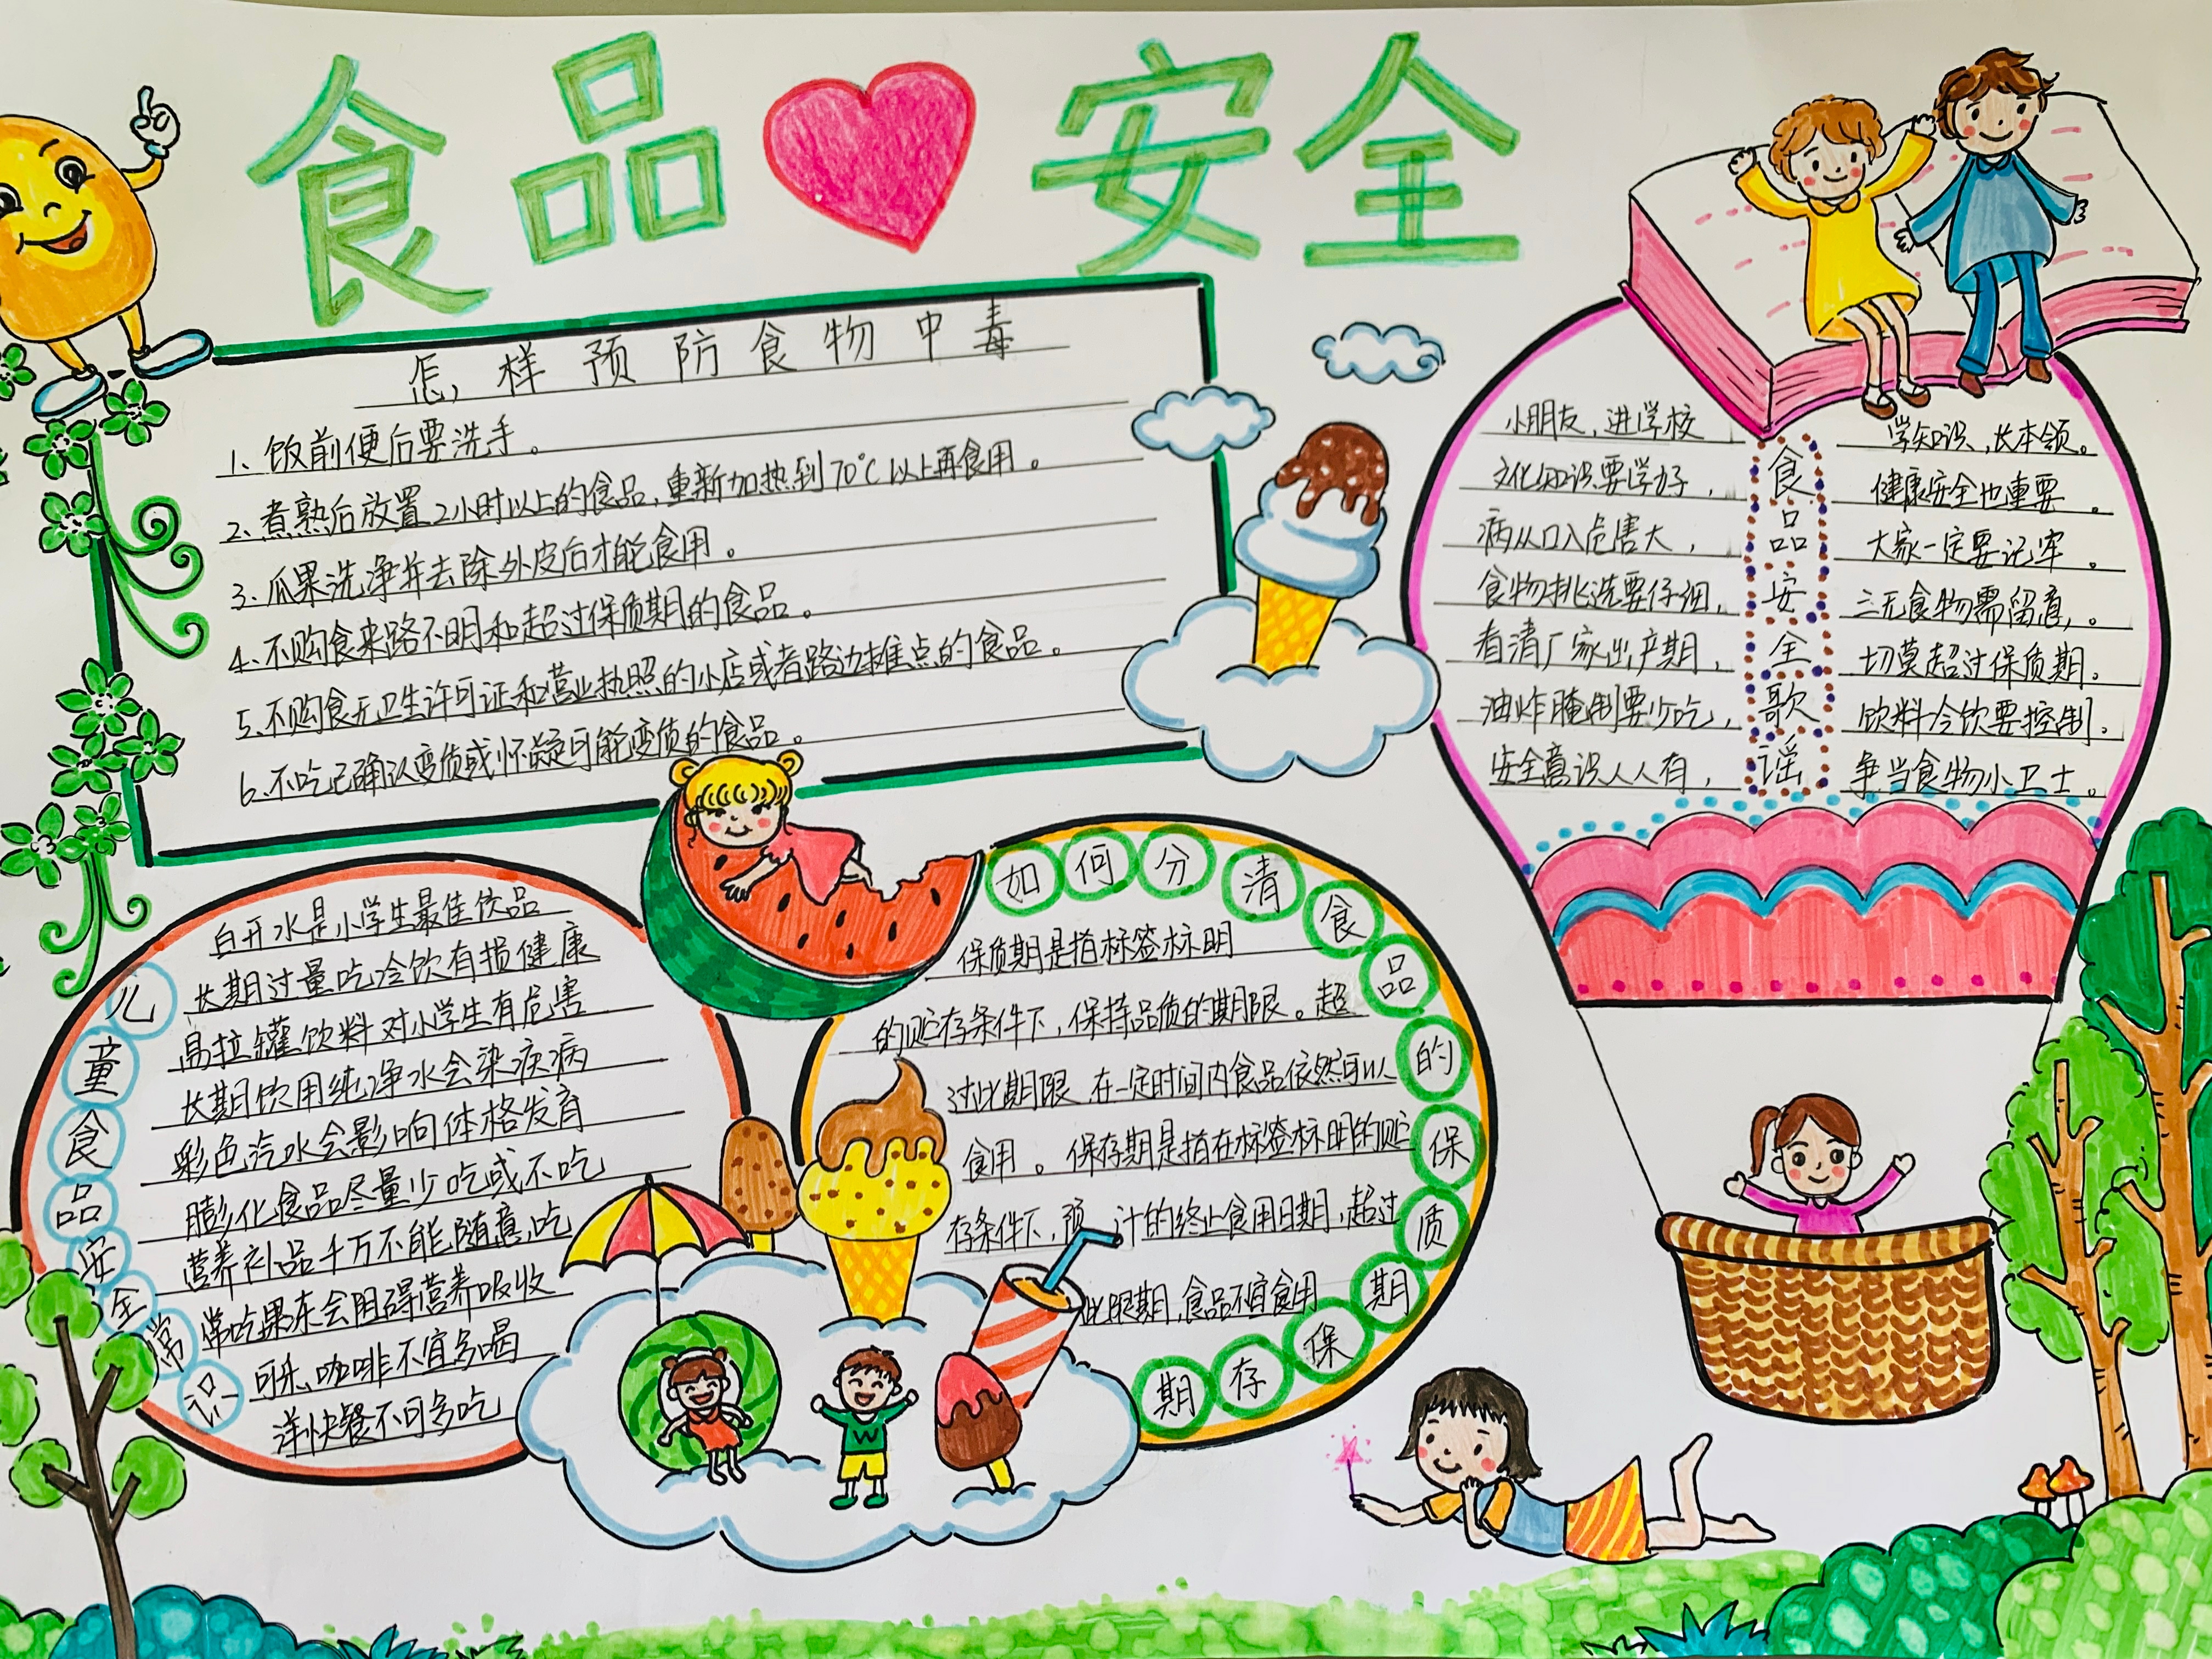 食品安全
怎样预防食物中毒
1、饭前便后要洗手。
2、煮熟后放置2小时以上的食品,重新加热到70℃以上再食用。
3、瓜果洗净并去除外皮后才能食用。
4、不购食来路不明和超过保质期的食品。
5、不购食无卫生许可证和营业执照的小店或者路边摊点的食品。
6、不吃已确认变质或怀疑可能变质的食品。
食品安全歌谣
小朋友,进学校 学知识,长本领。
文化知识要学好, 健康安全也重要。
病从口入危害大, 大家一定要记牢。
食物挑选要仔细, 三无食物需留意,。
看清厂家出产期, 切莫超过保质期。
油炸腌制要少吃, 饮料冷饮要控制。
安全意识人人有, 争当食物小卫士。
儿童食品安全常识
白开水是小学生最佳饮品
长期过量吃冷饮有损健康
易拉罐饮料对小学生有危害
长期饮用纯净水会染疾病
彩色汽水会影响体格发育
膨化食品尽量少吃或不吃
营养补品千万不能随意吃
常吃果冻会阻碍营养吸收
可乐、咖啡不宜多喝
洋快餐不可多吃
如何分清食品的保质期保存期
保质期是指标签标明
的贮存条件下,保持品质的期限。超
过此期限,在一定时间内食品依然可以
食用。保存期是指在标签标明的贮
存条件下,预计的终止食用日期,超过
此限期,食品不宜食用
W